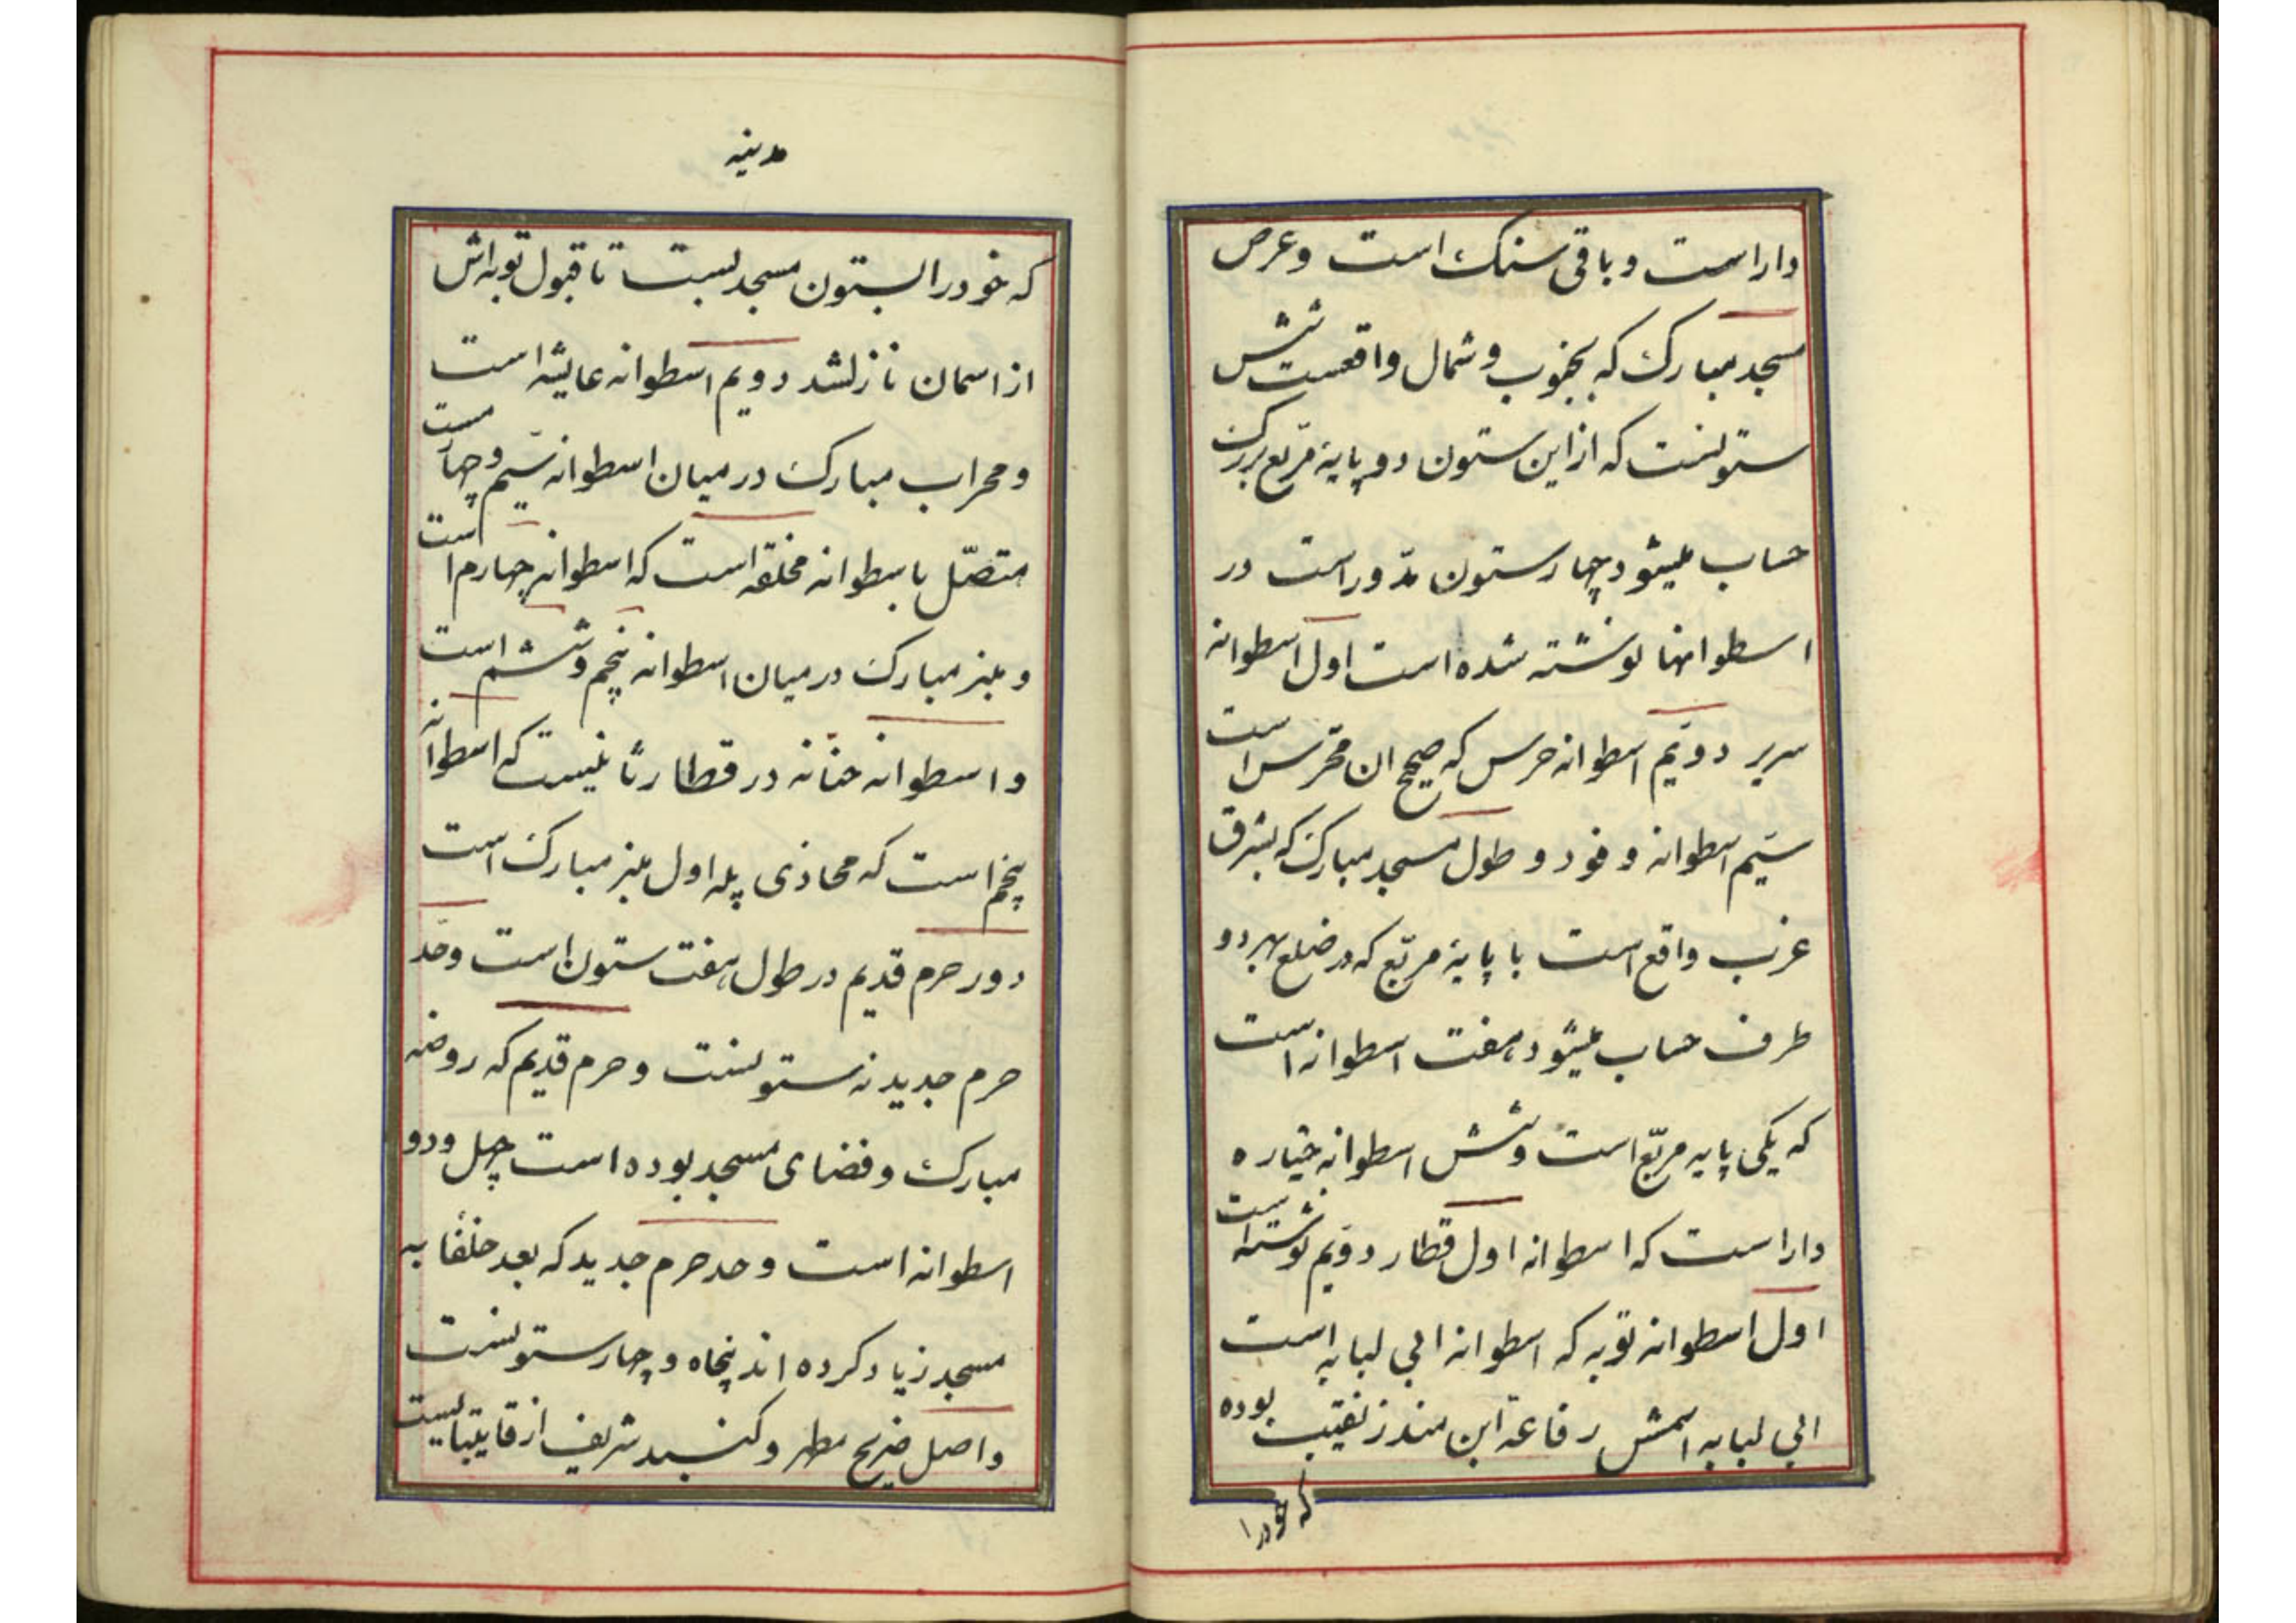 دار است و باقی سنک است و عرض
مسجد مبارک که بجنوب و شمال واقعست شش
ستونست که از این ستون دو پایهٔ مربّع بزرک
حساب میشود چهار ستون مدّور است در
اسطوانها نوشته شده است اول اسطوانه
سریر دویّم اسطوانه حرس که صحیح ان محرّس است
سیّم اسطوانه وفود و طول مسجد مبارک که بشرق
غرب واقع است با پایهٔ مربّع که در ضلع بهر دو
طرف حساب میشود هفت اسطوانه است
که یکی پایه مربّع است و شش اسطوانه خیاره
دار است که اسطوانه اول قطار دویّم نوشته است
اول اسطوانه توبه که اسطوانه ابی لبابه است
ابی لبابه اسمش رفاعة ابن منذر نقیب بوده
که خودرا
مدینه
که خودرا بستون مسجد بست تا قبول توبه‌اش
از اسمان نازلشد دویم اسطوانه عایشه است
و محراب مبارک در میان اسطوانه سیّم و چهار مست
متصّل باسطوانه مخلقه است که اسطوانه چهارم است
و منبر مبارک در میان اسطوانه پنجم و ششم است
و اسطوانه حنّانه در قطار ثانیست که اسطوانه
پنجم است که محاذی پله اول منبر مبارک است
دور حرم قدیم در طول هفت ستون است و حّد
حرم جدید نه ستونست و حرم قدیم که روضه
مبارک و فضای مسجد بوده است چهل و دو
اسطوانه است و حد حرم جدید که بعد خلفا به
مسجد زیاد کرده اند پنجاه و چهار ستونست
و اصل ضریح مطهر و کنبد شریف از قایتبایست